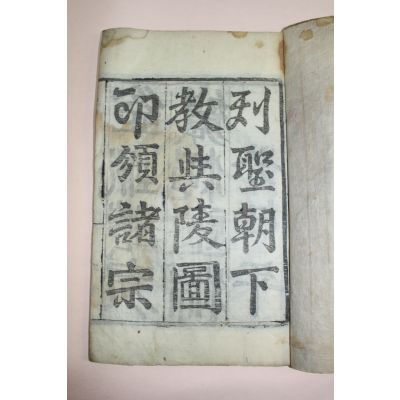 列聖朝下
教與陵圖
印頒諸宗